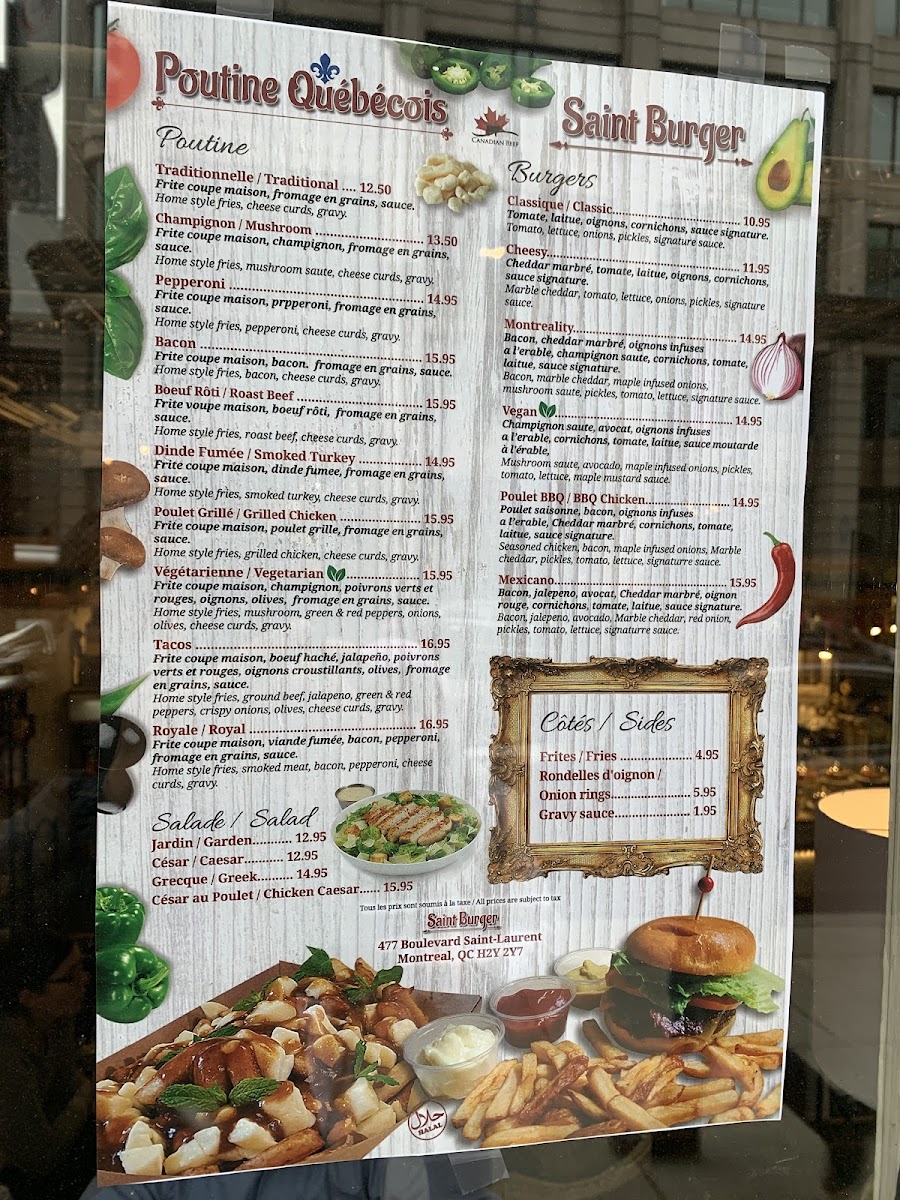 Poutine Québécois
Poutine
Traditionnelle / Traditional .... 12.50
Frite coupe maison, fromage en grains, sauce.
Home style fries, cheese curds, gravy.
Champignon / Mushroom .......................... 13.50
Frite coupe maison, champignon, fromage en grains,
sauce.
Home style fries, mushroom saute, cheese curds, gravy.
Pepperoni ................................................ 14.95
Frite coupe maison, prpperoni, fromage en grains,
sauce.
Home style fries, pepperoni, cheese curds, gravy.
Bacon ...................................................... 15.95
Frite coupe maison, bacon. fromage en grains, sauce.
Home style fries, bacon, cheese curds, gravy.
Boeuf Rôti / Roast Beef ............................... 15.95
Frite voupe maison, boeuf rôti, fromage en grains,
sauce.
Home style fries, roast beef, cheese curds, gravy.
Dinde Fumée / Smoked Turkey ............... 14.95
Frite coupe maison, dinde fumee, fromage en grains,
sauce.
Home style fries, smoked turkey, cheese curds, gravy.
Poulet Grillé / Grilled Chicken ................... 15.95
Frite coupe maison, poulet grille, fromage en grains,
sauce.
Home style fries, grilled chicken, cheese curds, gravy.
Végétarienne / Vegetarian .................. 15.95
Frite coupe maison, champignon, poivrons verts et
rouges, oignons, olives, fromage en grains, sauce.
Home style fries, mushroom, green & red peppers, onions,
olives, cheese curds, gravy.
Tacos ...................................................... 16.95
Frite coupe maison, boeuf haché, jalapeño, poivrons
verts et rouges, oignons croustillants, olives, fromage
en grains, sauce.
Home style fries, ground beef, jalapeno, green & red
peppers, crispy onions, olives, cheese curds, gravy.
Royale / Royal ........................................ 16.95
Frite coupe maison, viande fumée, bacon, pepperoni,
fromage en grains, sauce.
Home style fries, smoked meat, bacon, pepperoni, cheese
curds, gravy.
Salade / Salad
Jardin / Garden.......... 12.95
César / Caesar.......... 12.95
Grecque / Greek......... 14.95
César au Poulet / Chicken Caesar...... 15.95
CANADIAN BEEF
Saint Burger
Burgers
Classique / Classic............................... 10.95
Tomate, laitue, oignons, cornichons, sauce signature.
Tomato, lettuce, onions, pickles, signature sauce.
Cheesy.............................................. 11.95
Cheddar marbré, tomate, laitue, oignons, cornichons,
sauce signature.
Marble cheddar, tomato, lettuce, onions, pickles, signature
sauce.
Montreality........................................ 14.95
Bacon, cheddar marbré, oignons infuses
a l'erable, champignon saute, cornichons, tomate,
laitue, sauce signature.
Bacon, marble cheddar, maple infused onions,
mushroom saute, pickles, tomato, lettuce, signature sauce.
Vegan ............................................ 14.95
Champignon saute, avocat, oignons infuses
a l'erable, cornichons, tomate, laitue, sauce moutarde
à l'érable,
Mushroom saute, avocado, maple infused onions, pickles,
tomato, lettuce, maple mustard sauce.
Poulet BBQ / BBQ Chicken..................... 14.95
Poulet saisonne, bacon, oignons infuses
a l'erable, Cheddar marbré, cornichons, tomate,
laitue, sauce signature.
Seasoned chicken, bacon, maple infused onions, Marble
cheddar, pickles, tomato, lettuce, signaturre sauce.
Mexicano........................................... 15.95
Bacon, jalepeno, avocat, Cheddar marbré, oignon
rouge, cornichons, tomate, laitue, sauce signature.
Bacon, jalepeno, avocado, Marble cheddar, red onion,
pickles, tomato, lettuce, signaturre sauce.
Côtés / Sides
Frites / Fries .................. 4.95
Rondelles d'oignon /
Onion rings.................... 5.95
Gravy sauce................... 1.95
Tous les prix sont soumis à la taxe / All prices are subject to tax
Saint Burger
477 Boulevard Saint-Laurent
Montreal, QC H2Y 2Y7
حلال
HALAL